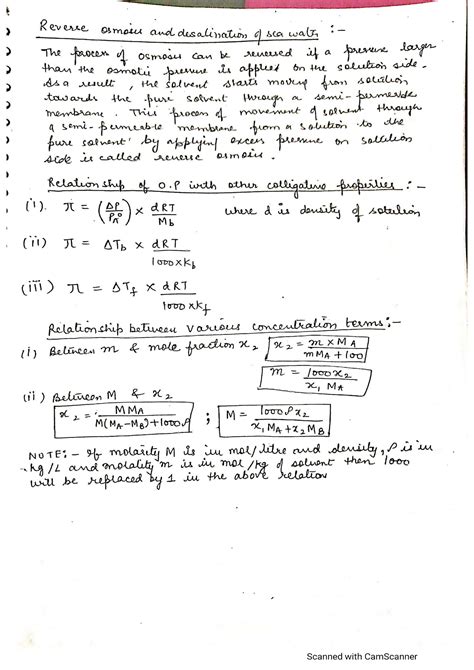 Reverse osmosis and desalination of sea water :-
The process of osmosis can be reversed if a pressure larger
than the osmotic pressure is applied on the solution side.
As a result, the solvent starts moving from solution
towards the pure solvent through a semi-permeable
membrane. This process of movement of solvent through
a semi-permeable membrane from a solution to the
pure solvent by applying excess pressure on solution
side is called reverse osmosis.
Relationship of O.P with other colligative properties :-
(i). π = (ΔP/P_A°) × dRT/M_b where d is density of solution
(ii) π = ΔT_b × dRT/1000×K_b
(iii) π = ΔT_f × dRT/1000×K_f
Relationship between various concentration terms:-
(i) Between m & mole fraction x₂ x₂ = m × M_A/mM_A + 100
m = 1000x₂/x₁ M_A
(ii) Between M & x₂
x₂ = MM_A/M(M_A-M_B)+1000ρ ; M = 1000ρx₂/x₁M_A+x₂M_B
NOTE:- If molarity M is in mol/litre and density, ρ is in
kg/L and molality m is in mol/kg of solvent then 1000
will be replaced by 1 in the above relation
Scanned with CamScanner